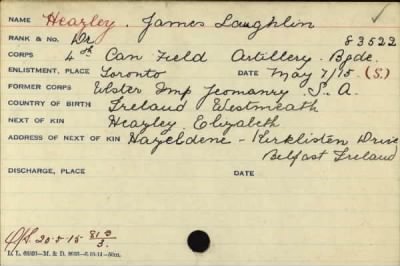 NAME Heazley. James Laughlin
RANK & NO. Dr. 83522
CORPS 4th Can Field Artillery. Bgde.
ENLISTMENT, PLACE Toronto DATE May 7/15 (S.)
FORMER CORPS Ulster Imp Yeomanry. S. A.
COUNTRY OF BIRTH Ireland Westmeath
NEXT OF KIN Heazley Elizabeth
ADDRESS OF NEXT OF KIN Hazeldene - Kirklisten Drive
Belfast Ireland
DISCHARGE, PLACE DATE
20-5-15